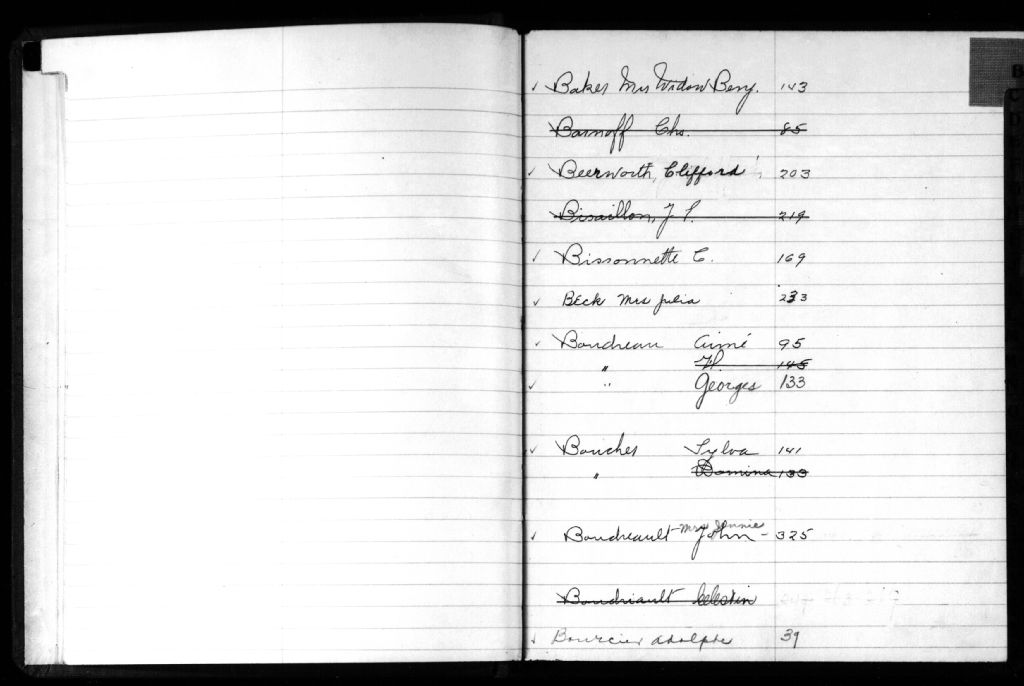 ✓ Baker Mrs Widow Beny. 143
Barnoff Chs. 85
✓ Beerworth, Clifford 203
Bisaillon, J. P. 219
✓ Bissonnette C. 169
✓ Beck Mrs Julia 233
✓ Boudreau Aimé 95
" H. 145
✓ " Georges 133
✓ Boucher Sylva 141
" Domina 133
Mrs Jennie
✓ Boudreault John - 325
Boudriault Celestin
✓ Bourcier Adolphe 39